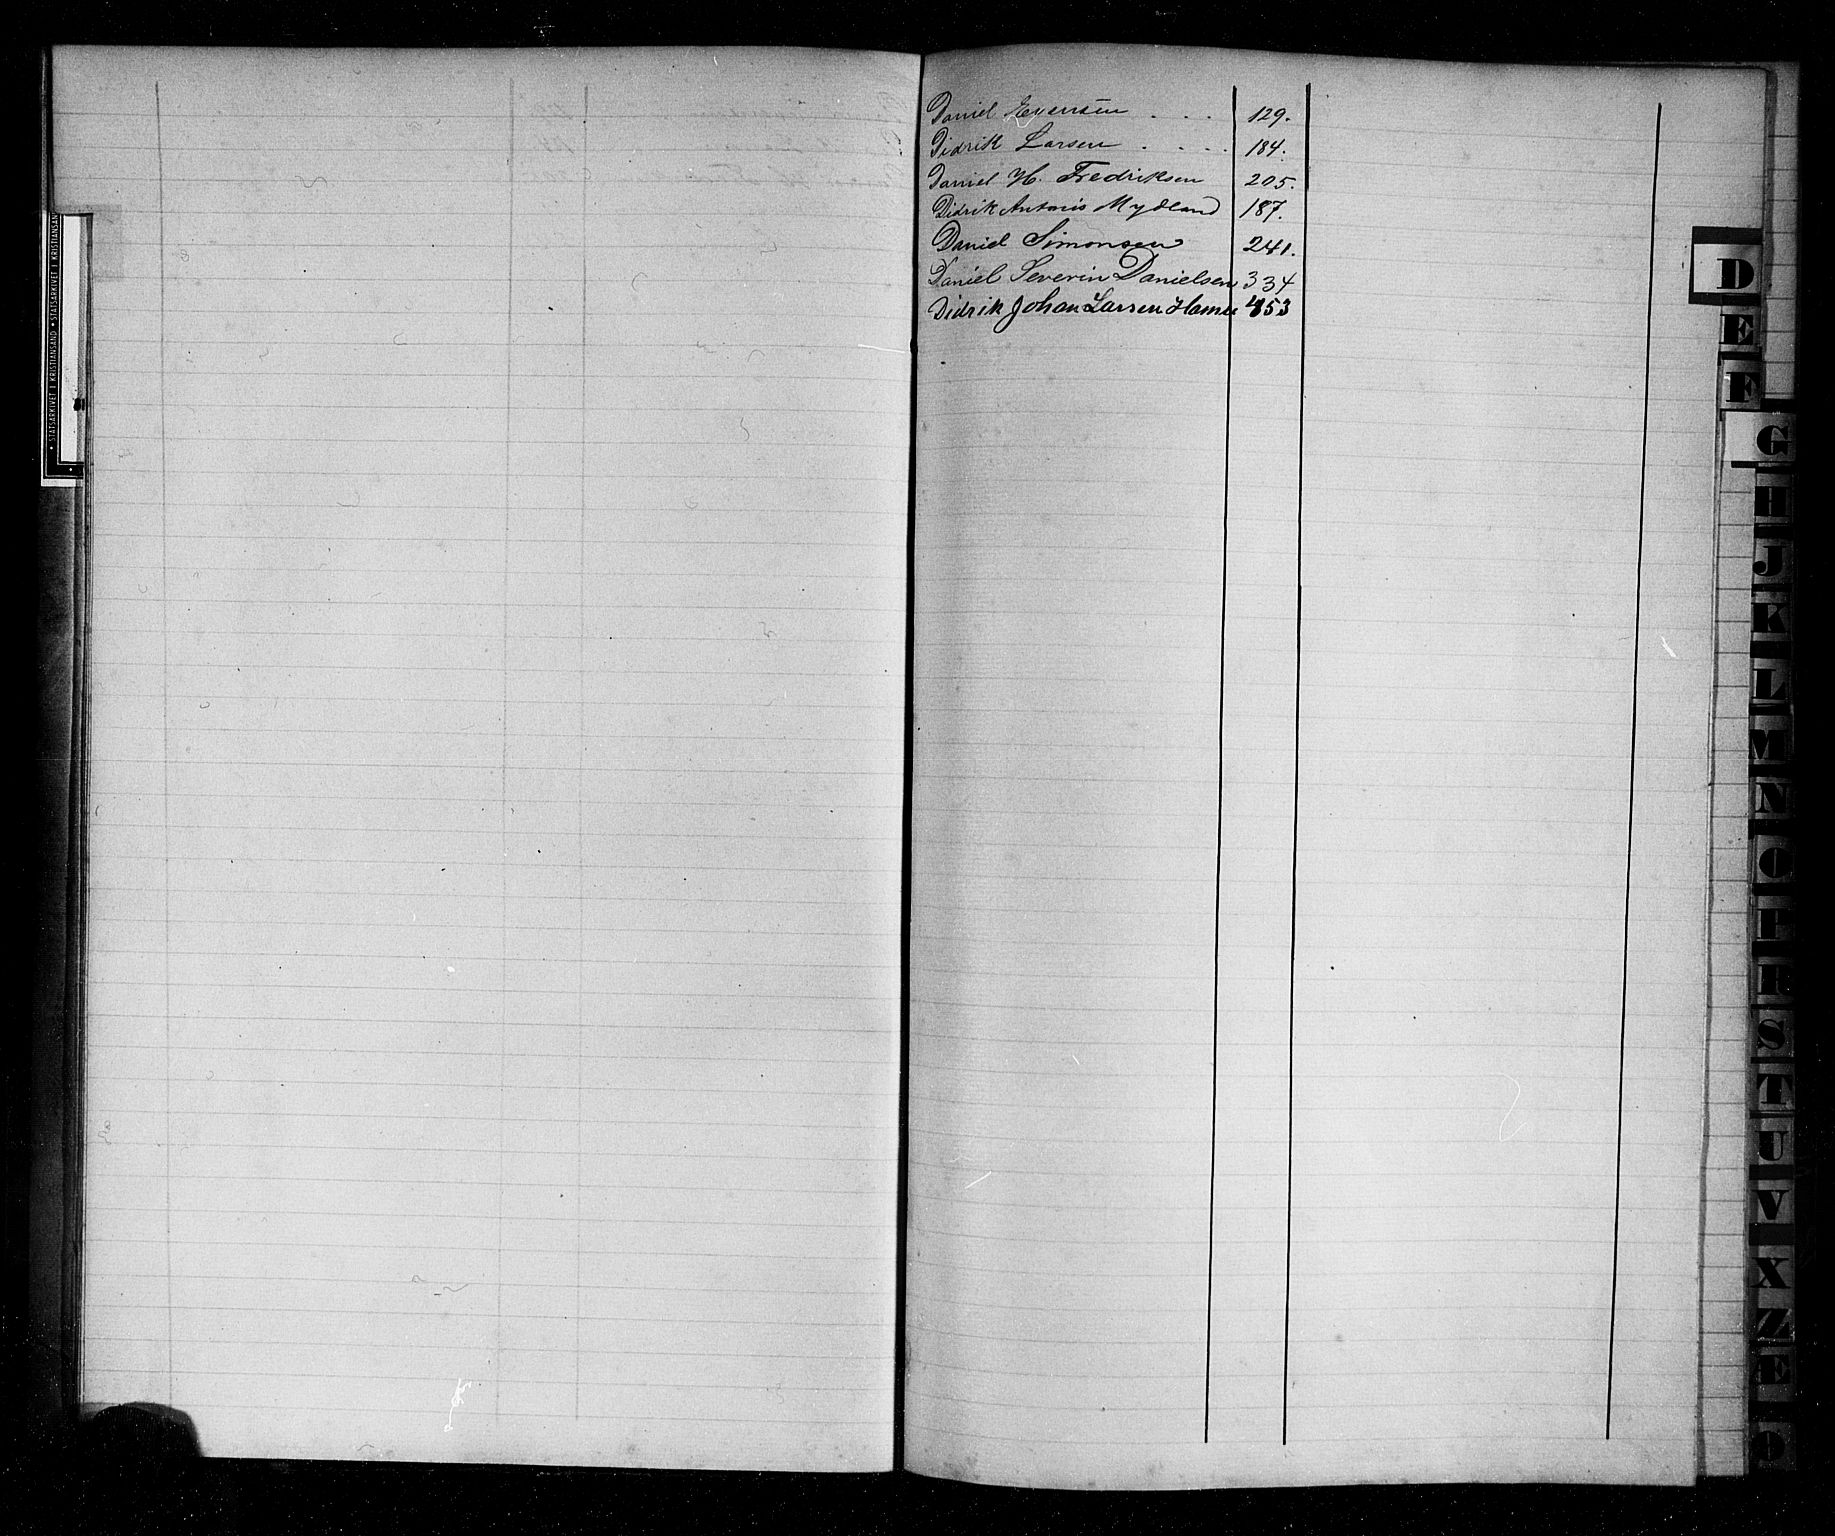 Daniel Evensen . . . 129.
Didrik Larsen . . . . 184.
Daniel H. Fredriksen 205.
Didrik Antonis Mydland 187.
Daniel Simonsen 241.
Daniel Severin Danielsen 334
Didrik Johan Larsen 453
D
E
F
G
H
J
K
L
M
N
O
P
R
S
T
U
V
X
Z
Æ
Ø
• STATSARKIVET I KRISTIANSAND • STATSARKIVET I KRISTIANSAND